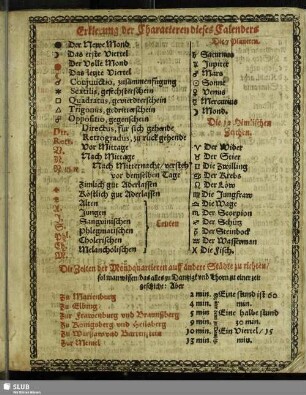 Erklerung der Charatteren dieses Calenders
Die 7 Planeten.
Der Newe Mond
Das erste Viertel
Der Volle Mond
Das letzte Viertel
☌ Conjunctio, zusammenfügung
⚹ Sextilis, gesechsterschein
□ Quadratus, gevierdterschein
△ Trigonus, gedritterschein
☍ Oppositio, gegenschein
Dir. Directus, für sich gehende
Retr. Retrogradus, zu rück gehende
Vor Mittage
Nach Mittage
Nach Mitternacht/ versteh
vor demselben Tage
Zimlich gut Aderlassen
Köstlich gut Aderlassen
Alten
Jungen
Sanguinischen
Phlegmatischen
Cholerischen
Melancholischen
Leuten
♄ Saturnus
♃ Jupiter
♂ Mars
☉ Sonne
♀ Venus
☿ Mercurius
☽ Mond.
Die 12 Himlischen
Zeichen.
♈ Der Wider
♉ Der Stier
♊ Die Zwilling
♋ Der Krebs
♌ Der Löw
♍ Die Jungfraw
♎ Die Wage
♏ Der Scorpion
♐ Der Schütz
♑ Der Steinbock
♒ Der Wasserman
♓ Die Fisch.
Die Zeiten der Mondquartieren auff andere Städte zu richten/
sol man wissen das alles zu Dantzig und Thorn zu einer zeit
geschicht: Aber
Zu Marienburg 2 min. Eine stund ist 60
Zu Elbing 4 min. min.
Zu Frawenburg und Braunsberg 5 min. Eine halbe stund
Zu Königsberg und Heilsberg 9 min. 30 min.
Zu Warschaw und Bartenstein 10 min. Ein Viertel/ 15
Zur Memel 13 min. min.
SLUB